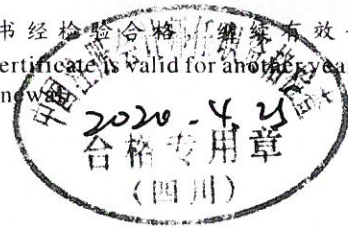 书经检验合格，继续有效
ertificate is valid for another year
newal
2020-4.25
合格专用章
(四川)